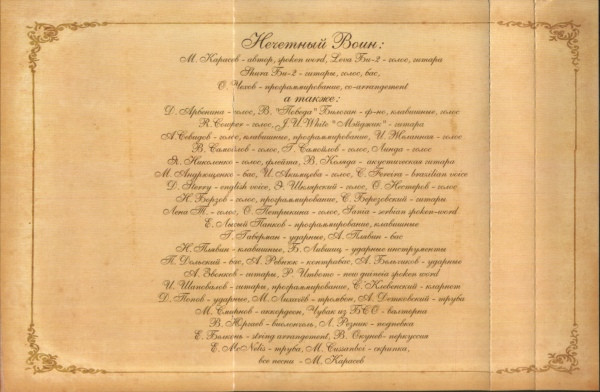 Нечетный Воин:
М. Карасев - автор, spoken word, Leva Би-2 - голос, гитара
Shura Би-2 - гитары, голос, бас,
О. Чехов - программирование, co-arrangement
а также:
Д. Арбенина - голос, В. "Победа" Билоган - ф-но, клавишные, голос
R. Cooper - голос, J.U. White "Мэйджик" - гитара
А. Севидов - голос, клавишные, программирование, И. Желанная - голос
В. Самойлов - голос, Г. Самойлов - голос, Линда - голос
Я. Николенко - голос, флейта, В. - акустическая гитара
М. Андрющенко - бас, И. Акимцева - голос, С. Foreira - brazilian voice
D. Sherry - english voice, Э. Шклярский - голос, О. Нестеров - голос
Н. Борзов - голос, программирование, С. Березовский - гитары
Лена Т. - голос, О. - голос, Samia - serbian spoken-word
Е. Лысый Панков - программирование, клавишные
Г. Гаверман - ударные, А. Плявин - бас
Н. Плявин - клавишные, Б. Лившиц - ударные инструменты
П. Дольский - бас, А. Ревнюк - контрабас, А. - ударные
А. Звонков - гитары, Р. - new guineia spoken word
И. Шаповалов - гитары, программирование, С. - кларнет
Д. Попов - ударные, М. - тромбон, А. - труба
М. Смирнов - аккордеон, Чувак из БСО - валторна
В. - виолончель, Л. Резник - подпевка
Е. - string arrangement, В. Окунев - перкуссия
E. McNelis - труба, М. - скрипка,
все песни - М. Карасев